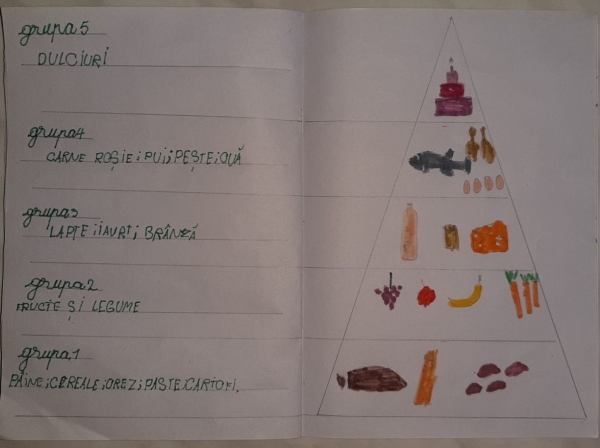 grupa 5
DULCIURI
grupa 4
CARNE ROȘIE; PUI; PEȘTE; OUĂ
grupa 3
LAPTE; IAURT; BRÂNZĂ
grupa 2
FRUCTE ȘI LEGUME
grupa 1
PÂINE; CEREALE; OREZ; PASTE; CARTOFI.